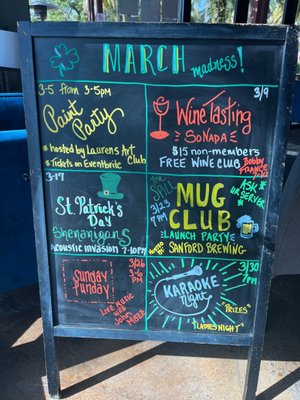 MARCH madness!
3-5 from 3-5pm
Paint Party
*hosted by Laurens Art Club
*Tickets on Eventbrite
3/9
Wine Tasting
SoNADA
$15 non-members
FREE WINE CLUB
Bobby
FRANCE
3-17
St. Patrick's
Day
Shenanigans
Acoustic invasion 7-10pm
3/23
7PM
MUG
CLUB
LAUNCH PARTY
*ASK
UR SERVER
HOSTED By SANFORD BREWING
SUNDAY
FUNDAY
3/26
3-6
PM
LIVE MUSIC
with
John
3/30
7PM
KARAOKE
night
"PRIZES"
"LADIES NIGHT"